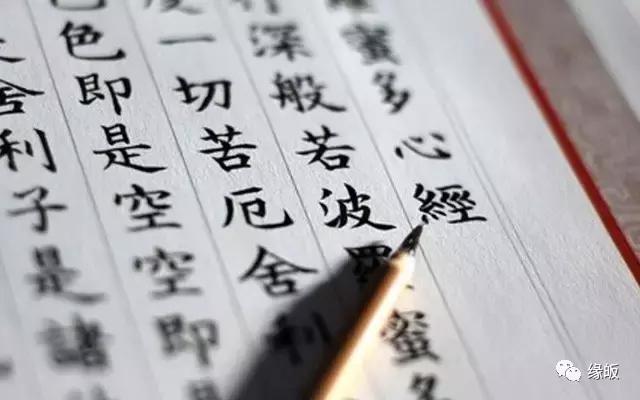 蜜多心經
行深般若波羅蜜多
度一切苦厄舍利
色即是空空即是
舍利子是諸
缘皈